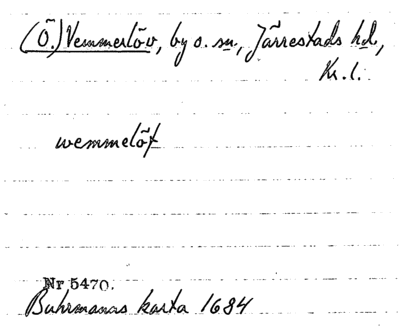 (Ö.) Vemmerlöv, by o. sn, Järrestads hd,
Kr. l.
wemmelöf
Nr 5470.
Buhrmanns karta 1684